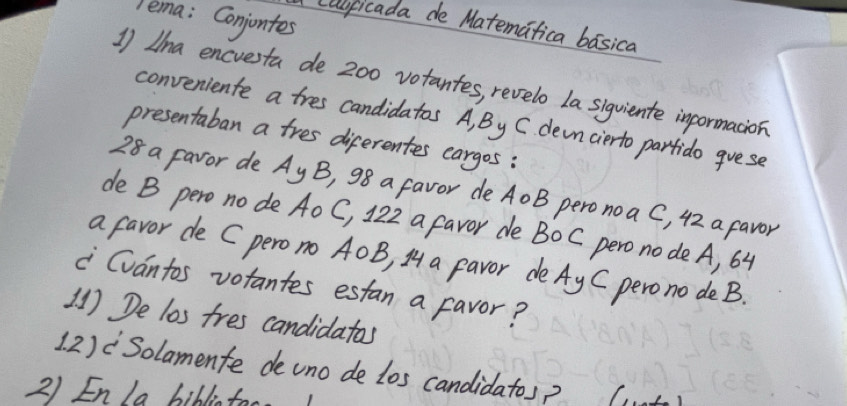 Tema: Conjuntos
calificada de Matemática básica
1) Una encuesta de 200 votantes, revelo la siguiente informacion
conveniente a tres candidatos A, B y C de un cierto partido que se
presentaban a tres diferentes cargos:
28 a favor de A y B, 98 a favor de A o B pero no a C, 42 a favor
de B pero no de A o C, 122 a favor de B o C pero no de A, 64
a favor de C pero no A o B, 14 a favor de A y C pero no de B.
¿Cuántos votantes estan a favor?
11) De los tres candidatos
1.2) ¿Solamente de uno de los candidatos?
2) En la